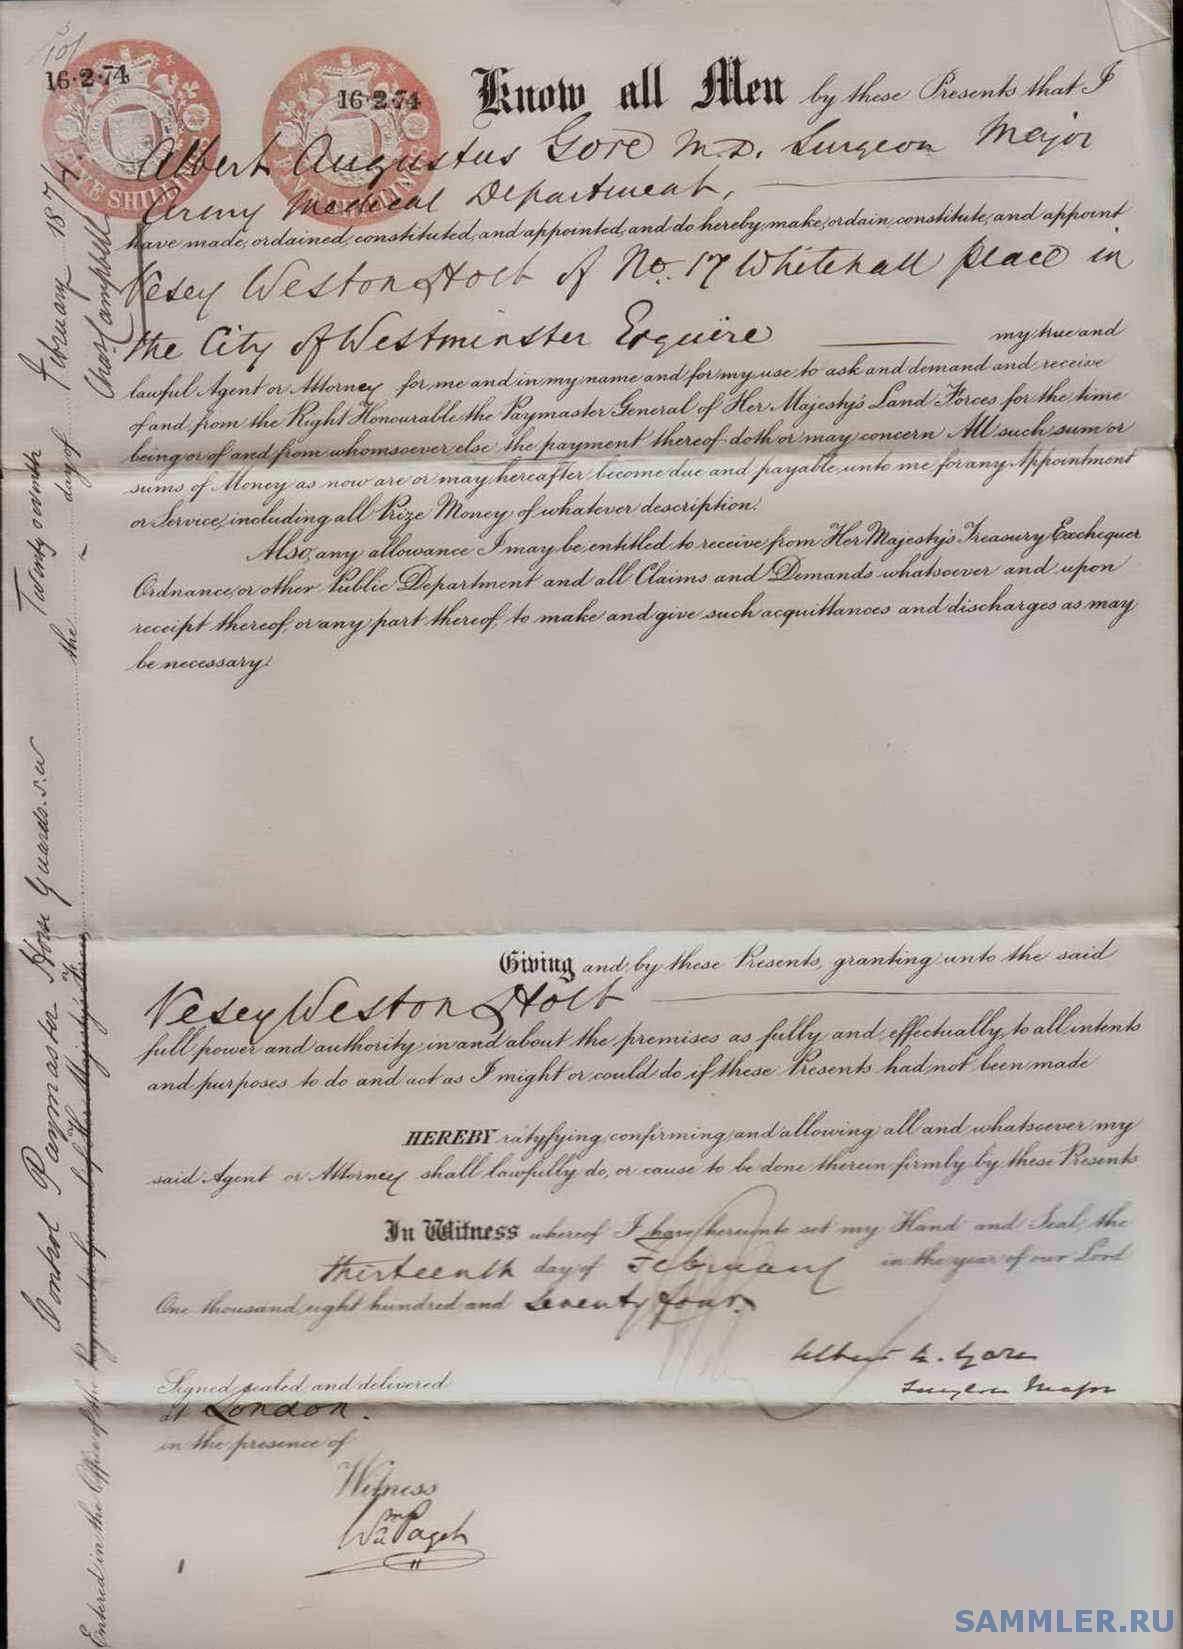 10/
16·2·74
16·2·74
FIVE SHILLINGS
Know all Men by these Presents that I
Albert Augustus Gore M.D. Surgeon Major
Army Medical Department,
have made, ordained, constituted, and appointed, and do hereby, make, ordain, constitute, and appoint
Vesey Weston Holt of No. 17 Whitehall place in
the City of Westminster Esquire my true and
lawful Agent or Attorney for me and in my name and for my use to ask and demand and receive
of and from the Right Honourable the Paymaster General of Her Majesty's Land Forces for the time
being or of and from whomsoever else the payment thereof doth or may concern All such sum or
sums of Money as now are or may hereafter become due and payable unto me for any Appointment
or Service, including all Prize Money of whatever description.
Also, any allowance I may be entitled to receive from Her Majesty's Treasury Exchequer
Ordnance, or other Public Department and all Claims and Demands whatsoever and upon
receipt thereof, or any part thereof, to make and give such acquittances and discharges as may
be necessary.
Giving and by these Presents, granting unto the said
Vesey Weston Holt
full power and authority in and about the premises as fully and effectually, to all intents
and purposes to do and act as I might or could do if these Presents had not been made
HEREBY ratyfying, confirming and allowing all and whatsoever my
said Agent or Attorney shall lawfully do, or cause to be done therein firmly by these Presents
In Witness whereof I have hereunto set my Hand and Seal, the
thirteenth day of February in the year of our Lord
One thousand eight hundred and seventy four.
Albert A. Gore
Surgeon Major
Signed, sealed and delivered
at London.
in the presence of
Witness
Wm Paget
Entered in the Office of the Paymaster General of Her Majesty's Forces the day of
Control Paymaster Horse Guards. S.W Twenty seventh February 1874.
Chas. Campbell
SAMMLER.RU